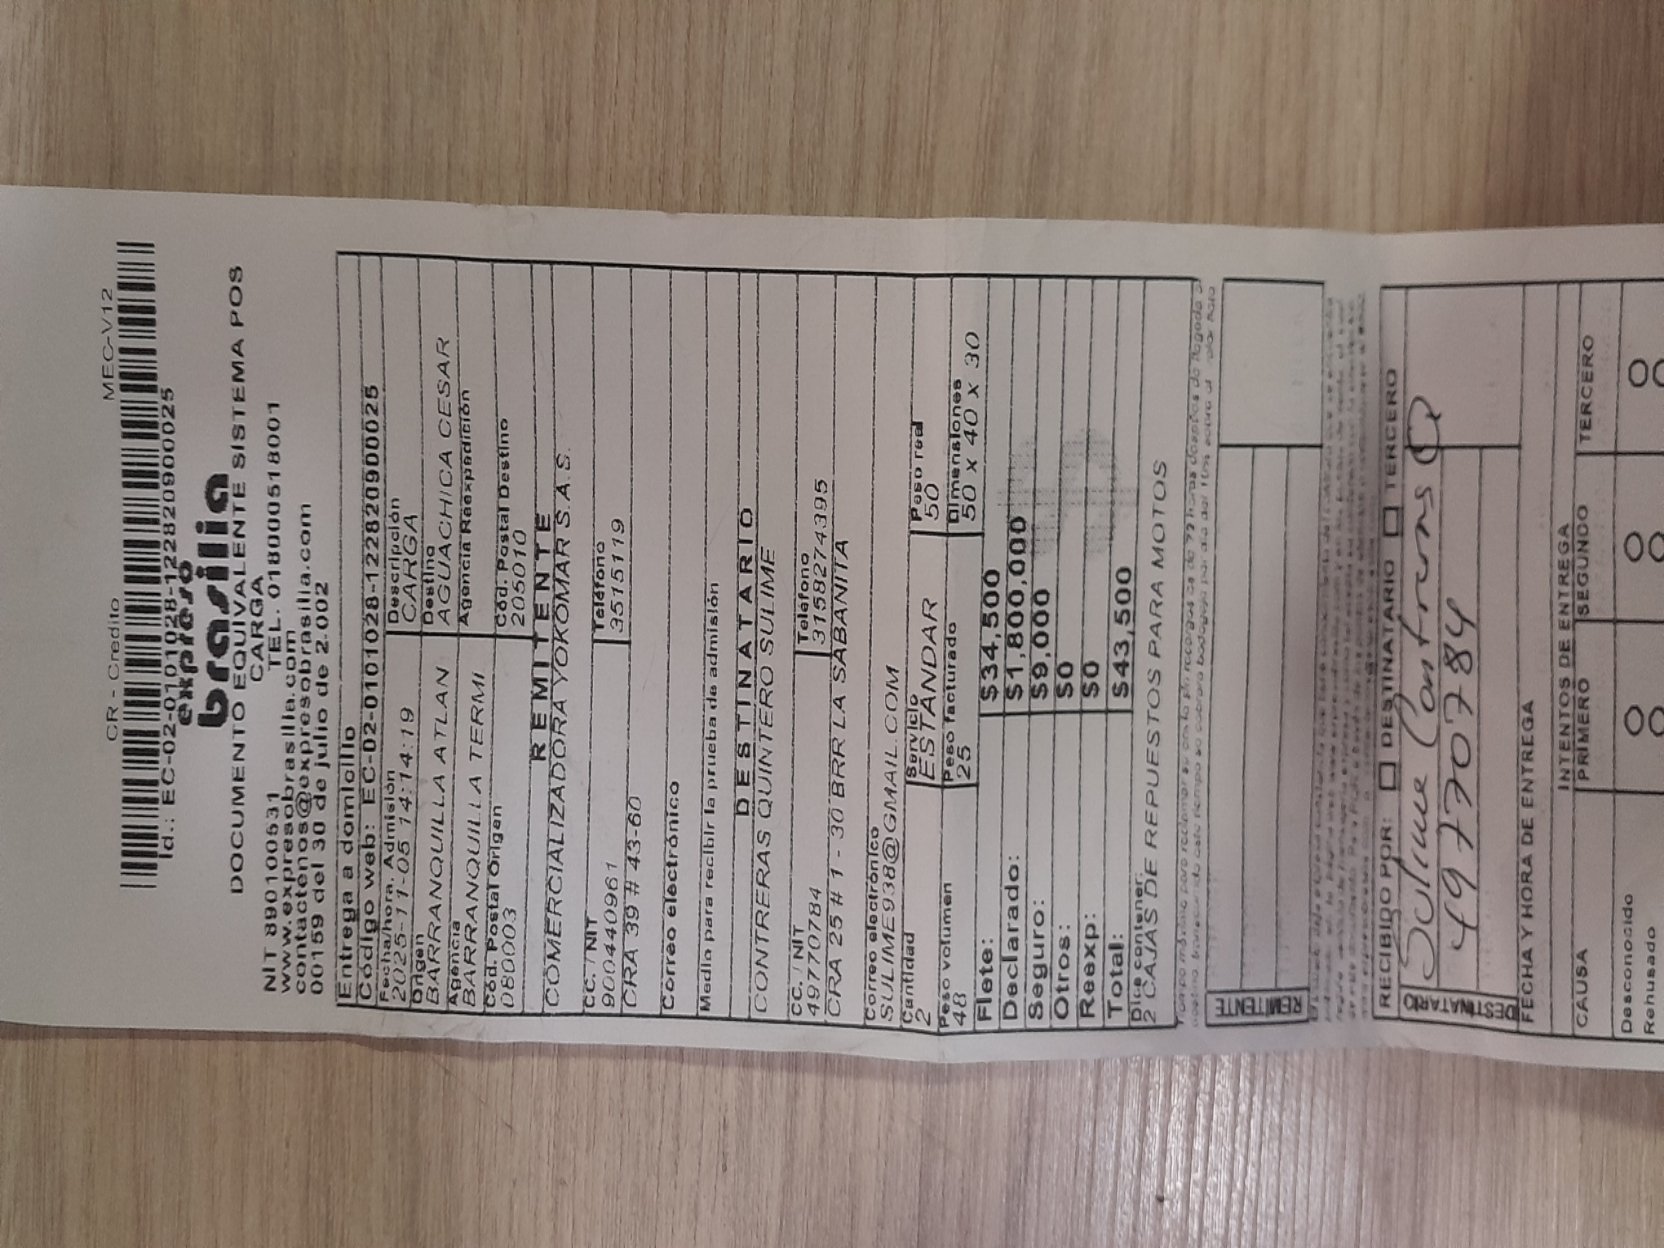 CR - Credito MEC-V12
Id.: EC-02-0101028-1228209000025
expreso
brasilia
DOCUMENTO EQUIVALENTE SISTEMA POS
CARGA
NIT 890100531 TEL. 018000518001
www.expresobrasilia.com
contactenos@expresobrasilia.com
00159 del 30 de julio de 2.002
Entrega a domicilio
Código web: EC-02-0101028-1228209000025
Fecha/hora. Admisión Descripción
2025-11-05 14:14:19 CARGA
Origen Destino
BARRANQUILLA ATLAN AGUACHICA CESAR
Agencia Agencia Reexpedición
BARRANQUILLA TERMI
Cód. Postal Origen Cód. Postal Destino
080003 205010
REMITENTE
COMERCIALIZADORA YOKOMAR S.A.S.
CC. / NIT Teléfono
900440961 3515119
CRA 39 # 43-60
Correo electrónico
Medio para recibir la prueba de admisión
DESTINATARIO
CONTRERAS QUINTERO SULIME
CC. / NIT Teléfono
49770784 3158274395
CRA 25 # 1 - 30 BRR LA SABANITA
Correo electrónico
SULIME938@GMAIL.COM
Cantidad Servicio Peso real
2 ESTANDAR 50
Peso volumen Peso facturado Dimensiones
48 25 50 x 40 x 30
Flete: $34,500
Declarado: $1,800,000
Seguro: $9,000
Otros: $0
Reexp: $0
Total: $43,500
Dice contener:
2 CAJAS DE REPUESTOS PARA MOTOS
REMITENTE
RECIBIDO POR: DESTINATARIO TERCERO
DESTINATARIO
Sulime Contreras Q
49770784
FECHA Y HORA DE ENTREGA
INTENTOS DE ENTREGA
CAUSA PRIMERO SEGUNDO TERCERO
Desconocido
Rehusado